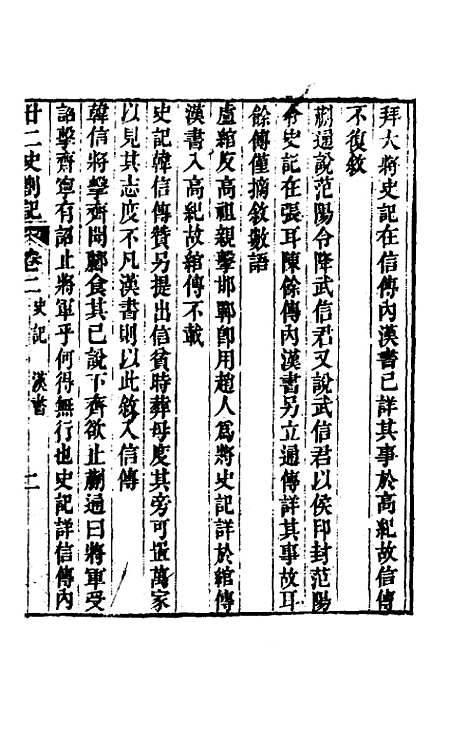 拜大將史記在信傳內漢書已詳其事於高紀故信傳
不復敘
蒯通說范陽令降武信君又說武信君以侯印封范陽
令史記在張耳陳餘傳內漢書另立通傳詳其事故耳
餘傳僅摘敘數語
盧綰反高祖親擊邯鄲卽用趙人爲將史記詳於綰傳
漢書入高紀故綰傳不載
史記韓信傳贊另提出信貧時葬母度其旁可置萬家
以見其志度不凡漢書則以此敘入信傳
韓信將擊齊聞酈食其已說下齊欲止蒯通曰將軍受
詔擊齊寧有詔止將軍乎何得無行也史記詳信傳內
廿二史劄記 卷二 史記 漢書